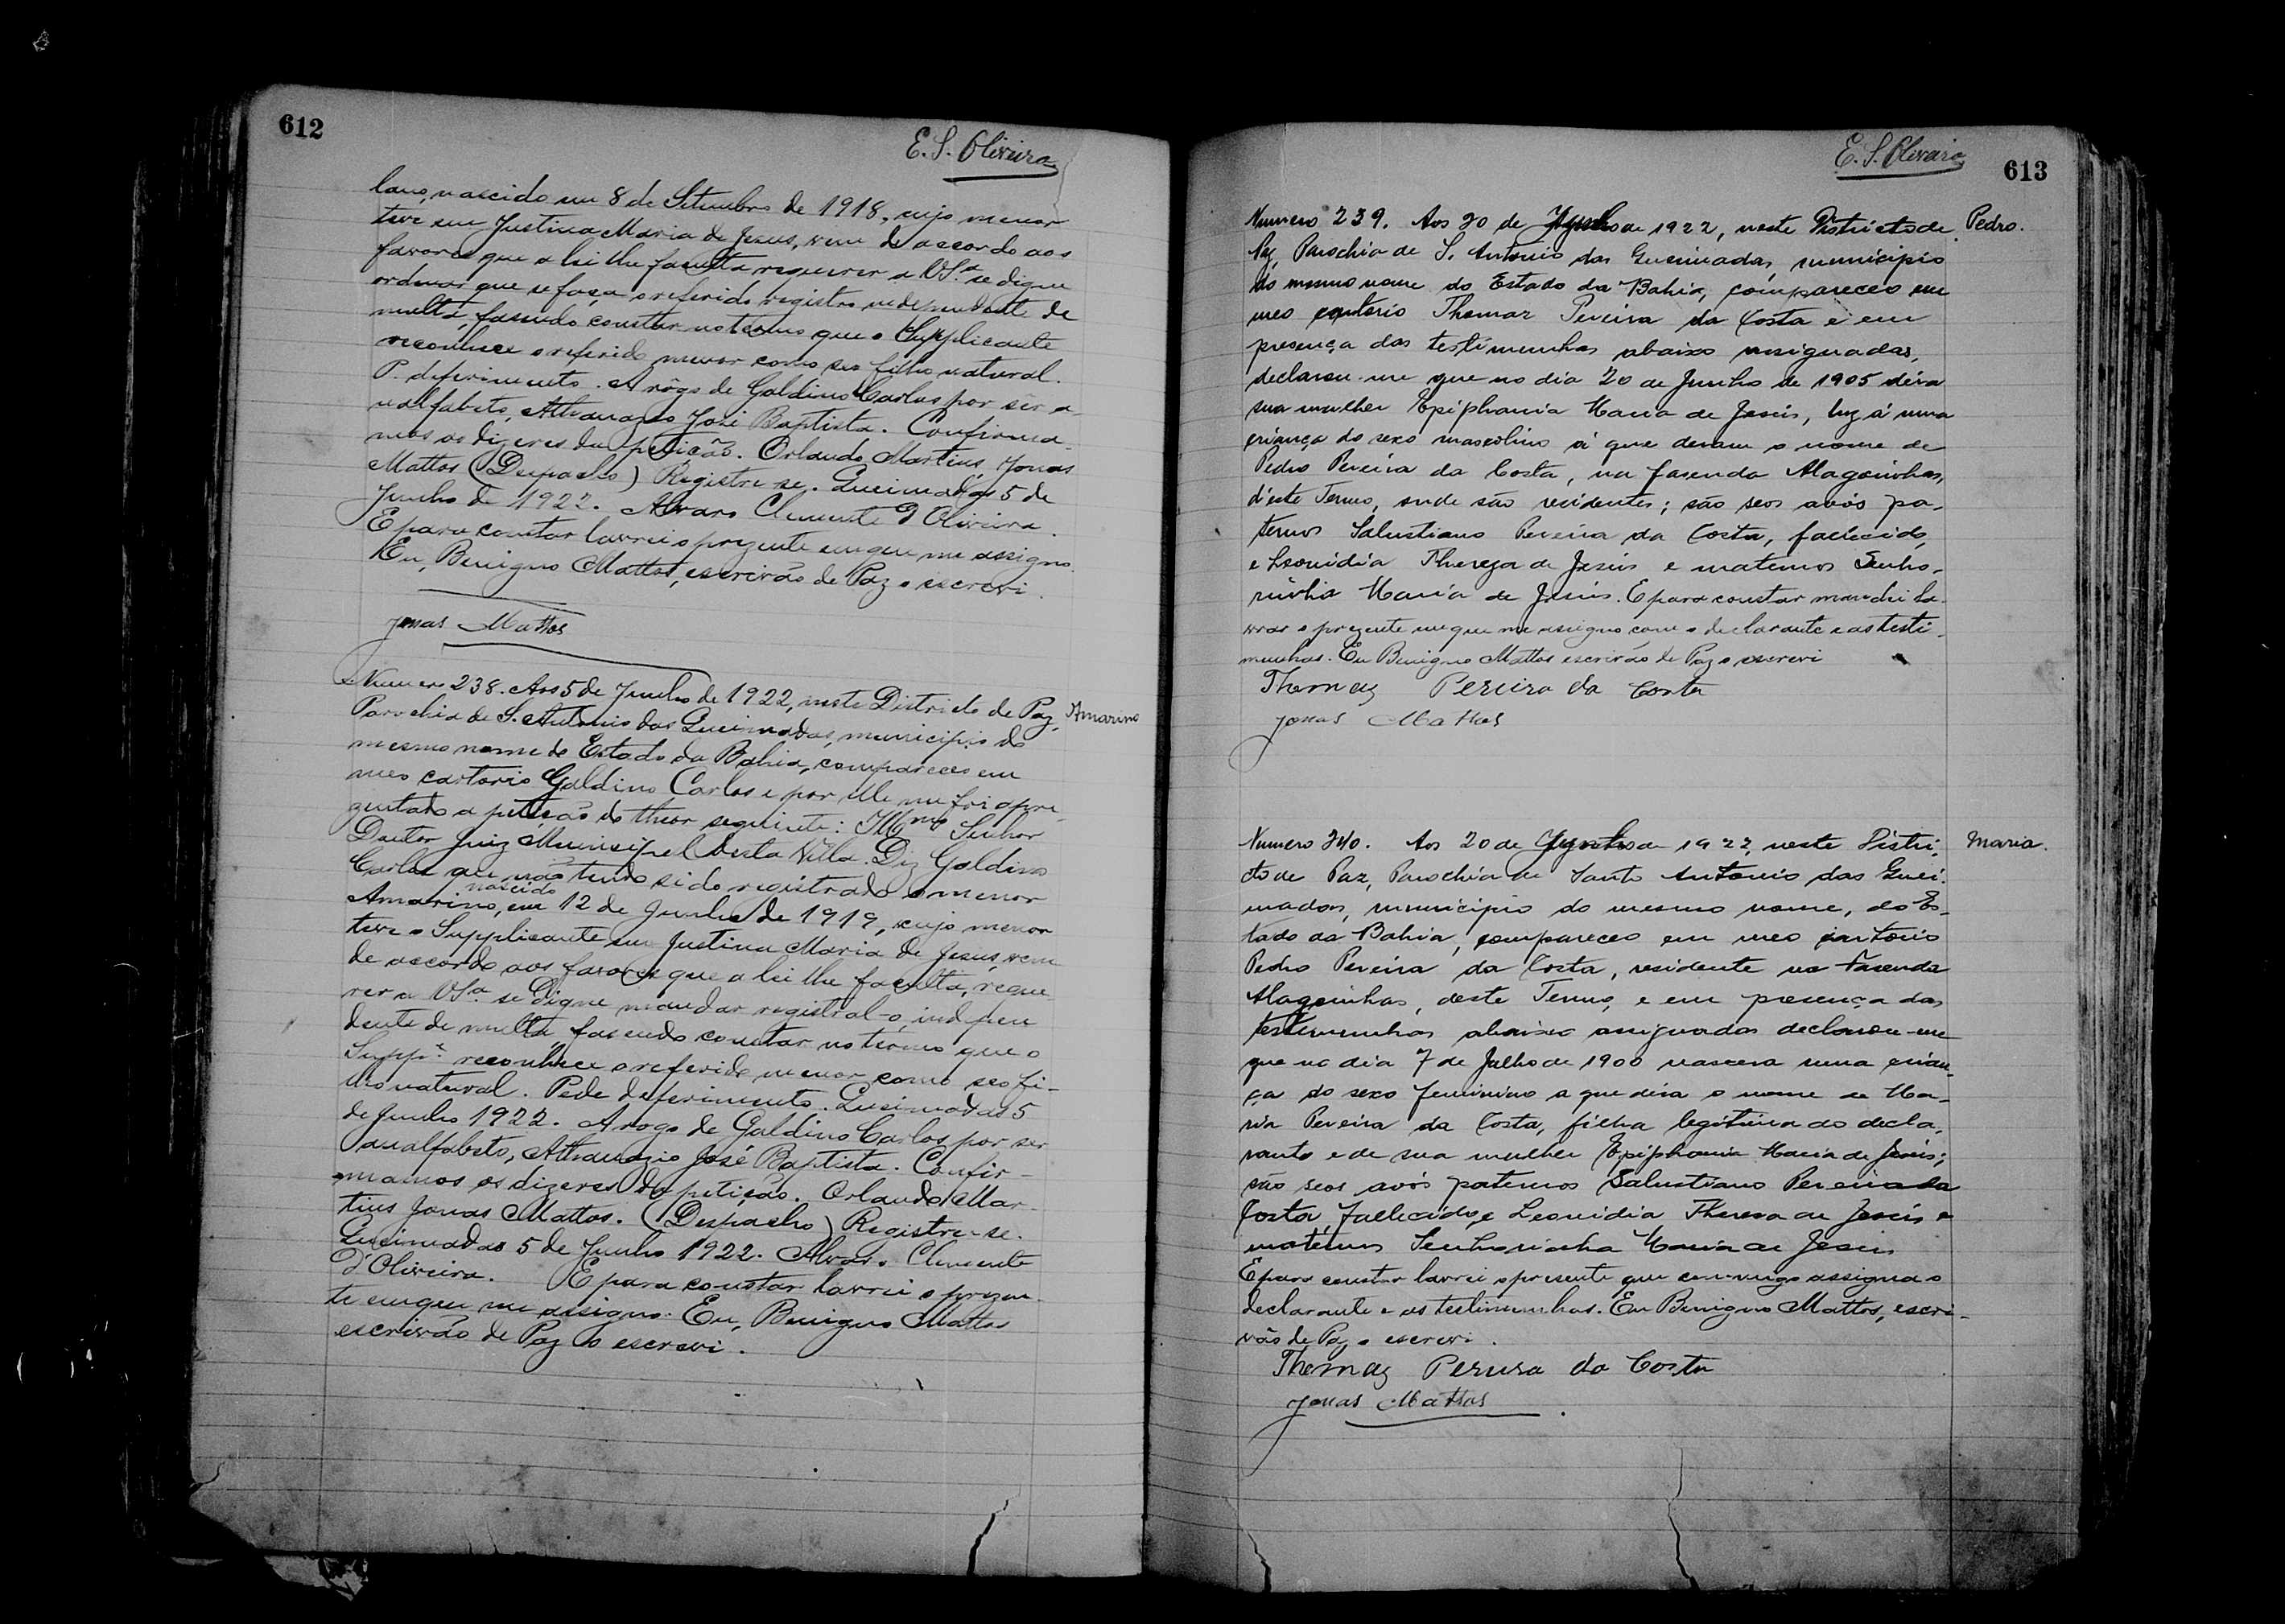 612
E. S. Oliveira
lano, nascido em 8 de Setembro de 1918, cujo menor
teve em Justina Maria de Jesus, vem de accordo aos
favores que a lei lhe faculta requerer a VSª se digne
ordenar que se faça o referido registro independente de
multa, fasendo constar no termo que o Supplicante
reconhece o referido menor como seo filho natural.
P. deferimento. A rôgo de Galdino Carlos por ser a-
nalfabeto, Athanazio José Baptista. Confirma-
mos os dizeres da petição. Orlando Martins, Jonas
Mattos (Despacho) Registre-se. Queimadas 5 de
Junho de 1922. Alvaro Clemente d'Oliveira.
E para constar lavrei o prezente em que me assigno.
Eu, Benigno Mattos, escrivão de Paz o escrevi.
Jonas Mattos
Numero 238. Aos 5 de Junho de 1922, neste Districto de Paz, Amarino
Parochia de S. Antonio das Queimadas, municipio do
mesmo nome do Estado da Bahia, compareceo em
meo cartorio Galdino Carlos e por elle me foi apre-
zentado a petição do theor seguinte: Illmº Senhor
Doutor Juiz Municipal desta Villa. Diz Galdino
Carlos que não tendo sido registrado o menor
nascido
Amarino, em 12 de Junho de 1919, cujo menor
teve o Supplicante em Justina Maria de Jesus, vem
de accordo aos favores que a lei lhe faculta, reque-
rer a VSª se digne mandar registral-o, indepen
dente de multa, fasendo constar no termo que o
Suppe reconhece o referido menor como seo fi-
lho natural. Pede deferimento. Queimadas 5
de Junho 1922. A rogo de Galdino Carlos por ser
analfabeto, Athanazio José Baptista. Confir-
mamos os dizeres da petição. Orlando Mar-
tins Jonas Mattos. (Despacho) Registre-se.
Queimadas 5 de Junho 1922. Alvaro Clemente
d'Oliveira. E para constar lavrei o prezen-
te em que me assigno. Eu, Benigno Mattos
escrivão de Paz o escrevi.
E. S. Oliveira
613
Numero 239. Aos 20 de Junho de 1922, neste Districto de Pedro.
Paz, Parochia de S. Antonio das Queimadas, municipio
do mesmo nome do Estado da Bahia, compareceo em
meo cartorio Thomaz Pereira da Costa e em
presença das testimunhas abaixo assignadas,
declarou-me que no dia 20 de Junho de 1905 déra
sua mulher Epiphania Maria de Jesús, luz á uma
criança do sexo masculino á que deram o nome de
Pedro Pereira da Costa, na fasenda Alagoinhas,
d'este Termo, onde são residentes; são seos avós pa-
ternos Salustiano Pereira da Costa, fallecido,
e Leonidia Thereza de Jesús e maternos Senho-
rinha Maria de Jesús. E para constar mandei la-
vrar o prezente em que me assigno com o declarante e as testi-
munhas. Eu Benigno Mattos escrivão de Paz o escrevi
Thomaz Pereira da Costa
Jonas Mattos
Numero 240. Aos 20 de Junho de 1922, neste Distri- Maria.
cto de Paz, Parochia de Santo Antonio das Quei-
madas, municipio do mesmo nome, do Es-
tado da Bahia, compareceo em meo cartorio
Pedro Pereira da Costa, residente na Fasenda
Alagoinhas, deste Termo, e em presença das
testemunhas abaixo assignadas declarou-me
que no dia 7 de Julho de 1900 nascera uma crian-
ça do sexo feminino a que déra o nome de Ma-
ria Pereira da Costa, filha legitima do decla-
rante e de sua mulher Epiphania Maria de Jesús;
são seos avós paternos Salustiano Pereira da
Costa, fallecido, e Leonidia Theresa de Jesús e
maternos Senhorinha Maria de Jesús
E para constar lavrei o presente que commigo assigna o
declarante e as testimunhas. Eu Benigno Mattos, escri-
vão de Paz o escrevi.
Thomaz Pereira da Costa
Jonas Mattos